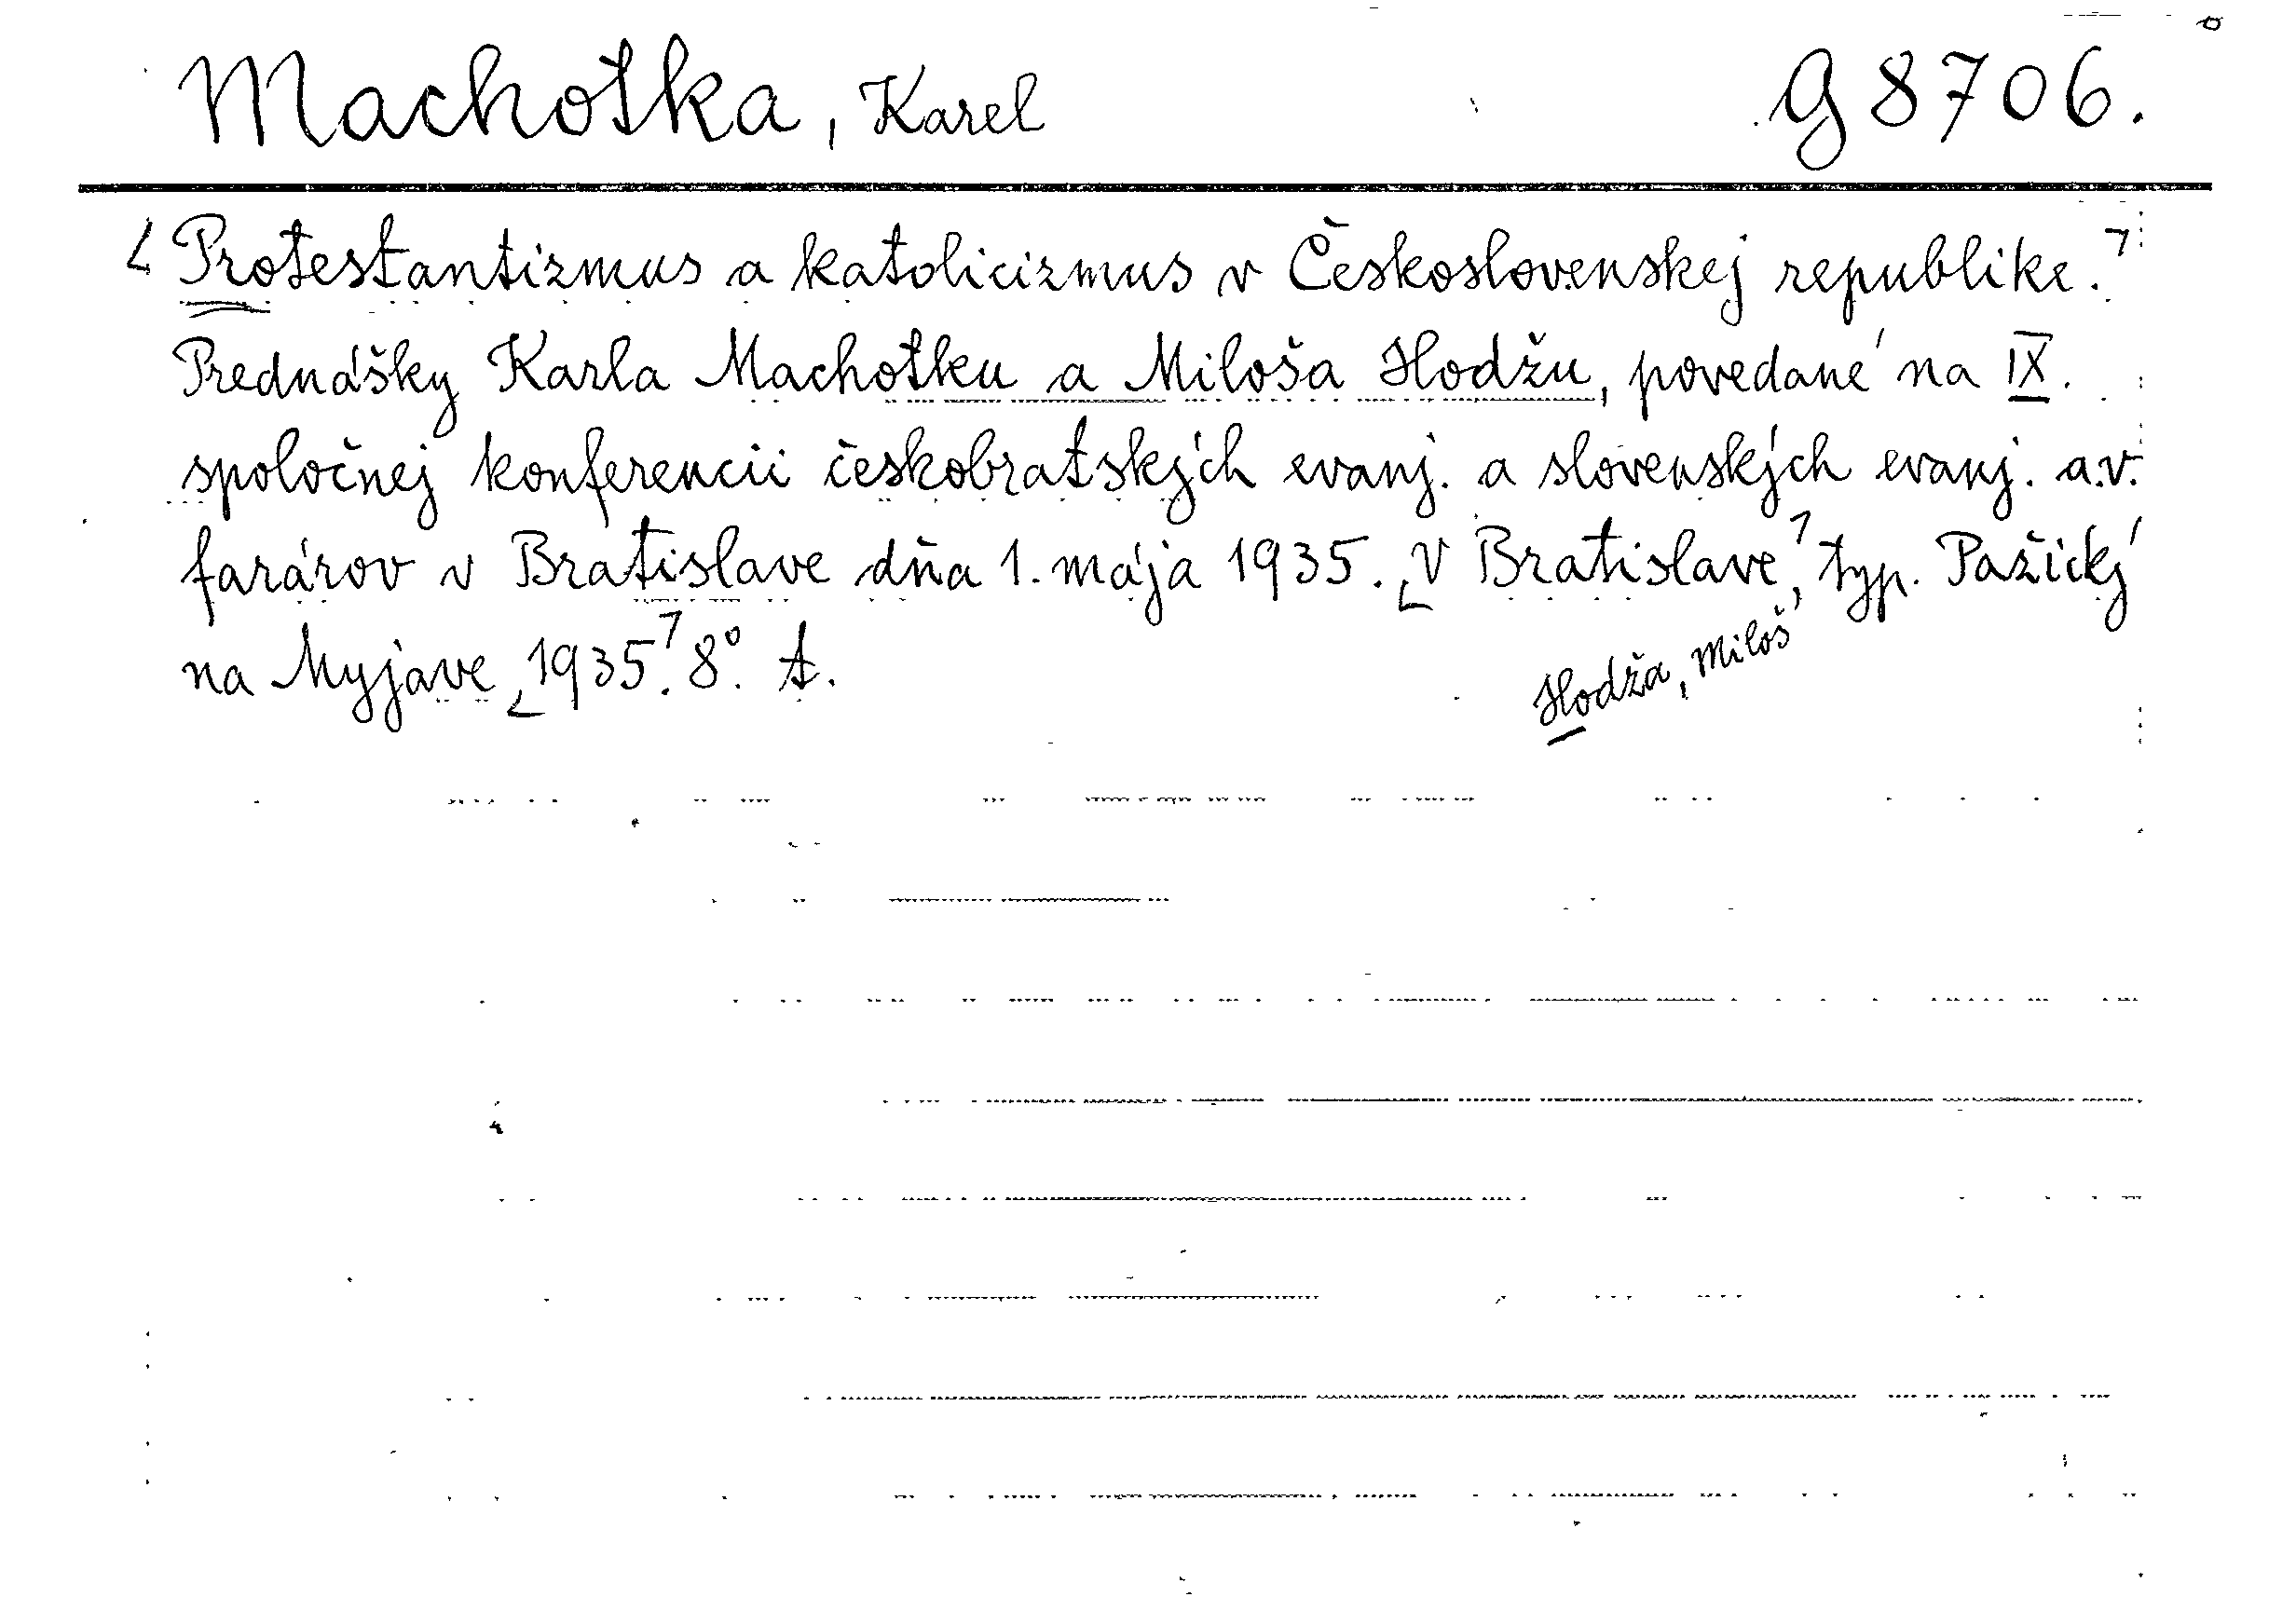 Machotka, Karel G 8706.
Protestantizmus a katolicizmus v Československej republike.
Prednášky Karla Machotku a Miloša Hodžu, povedané na IX.
spoločnej konferencii českobratských evanj. a slovenských evanj. a.v.
farárov v Bratislave dňa 1. mája 1935. V Bratislave, typ. Pažický
na Myjave 1935. 8°. A.
Hodža, Miloš